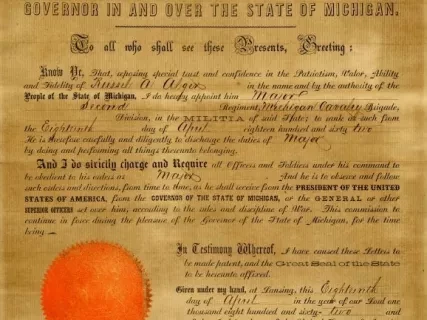 GOVERNOR IN AND OVER THE STATE OF MICHIGAN.
To all who shall see these Presents, Greeting:
Know Ye, That, reposing special trust and confidence in the Patriotism, Valor, Ability
and Fidelity of Russel A. Alger in the name and by the authority of the
People of the State of Michigan, I do hereby appoint him Major
Second Regiment, Michigan Cavalry Brigade,
Division, in the MILITIA of said State; to rank as such from
the Eighteenth day of April eighteen hundred and sixty two
He is therefore carefully and diligently to discharge the duties of Major
by doing and performing all things thereunto belonging.
And I do strictly charge and Require all Officers and Soldiers under his command to
be obedient to his orders as Major And he is to observe and follow
such orders and directions, from time to time, as he shall receive from the PRESIDENT OF THE UNITED
STATES OF AMERICA, from the GOVERNOR OF THE STATE OF MICHIGAN, or the GENERAL or other
SUPERIOR OFFICERS set over him, according to the rules and discipline of War. This commission to
continue in force during the pleasure of the Governor of the State of Michigan, for the time
being.
In Testimony Whereof, I have caused these Letters to
be made patent, and the Great Seal of the State
to be hereunto affixed.
Given under my hand, at Lansing, this Eighteenth
day of April in the year of our Lord one
thousand eight hundred and sixty-two and